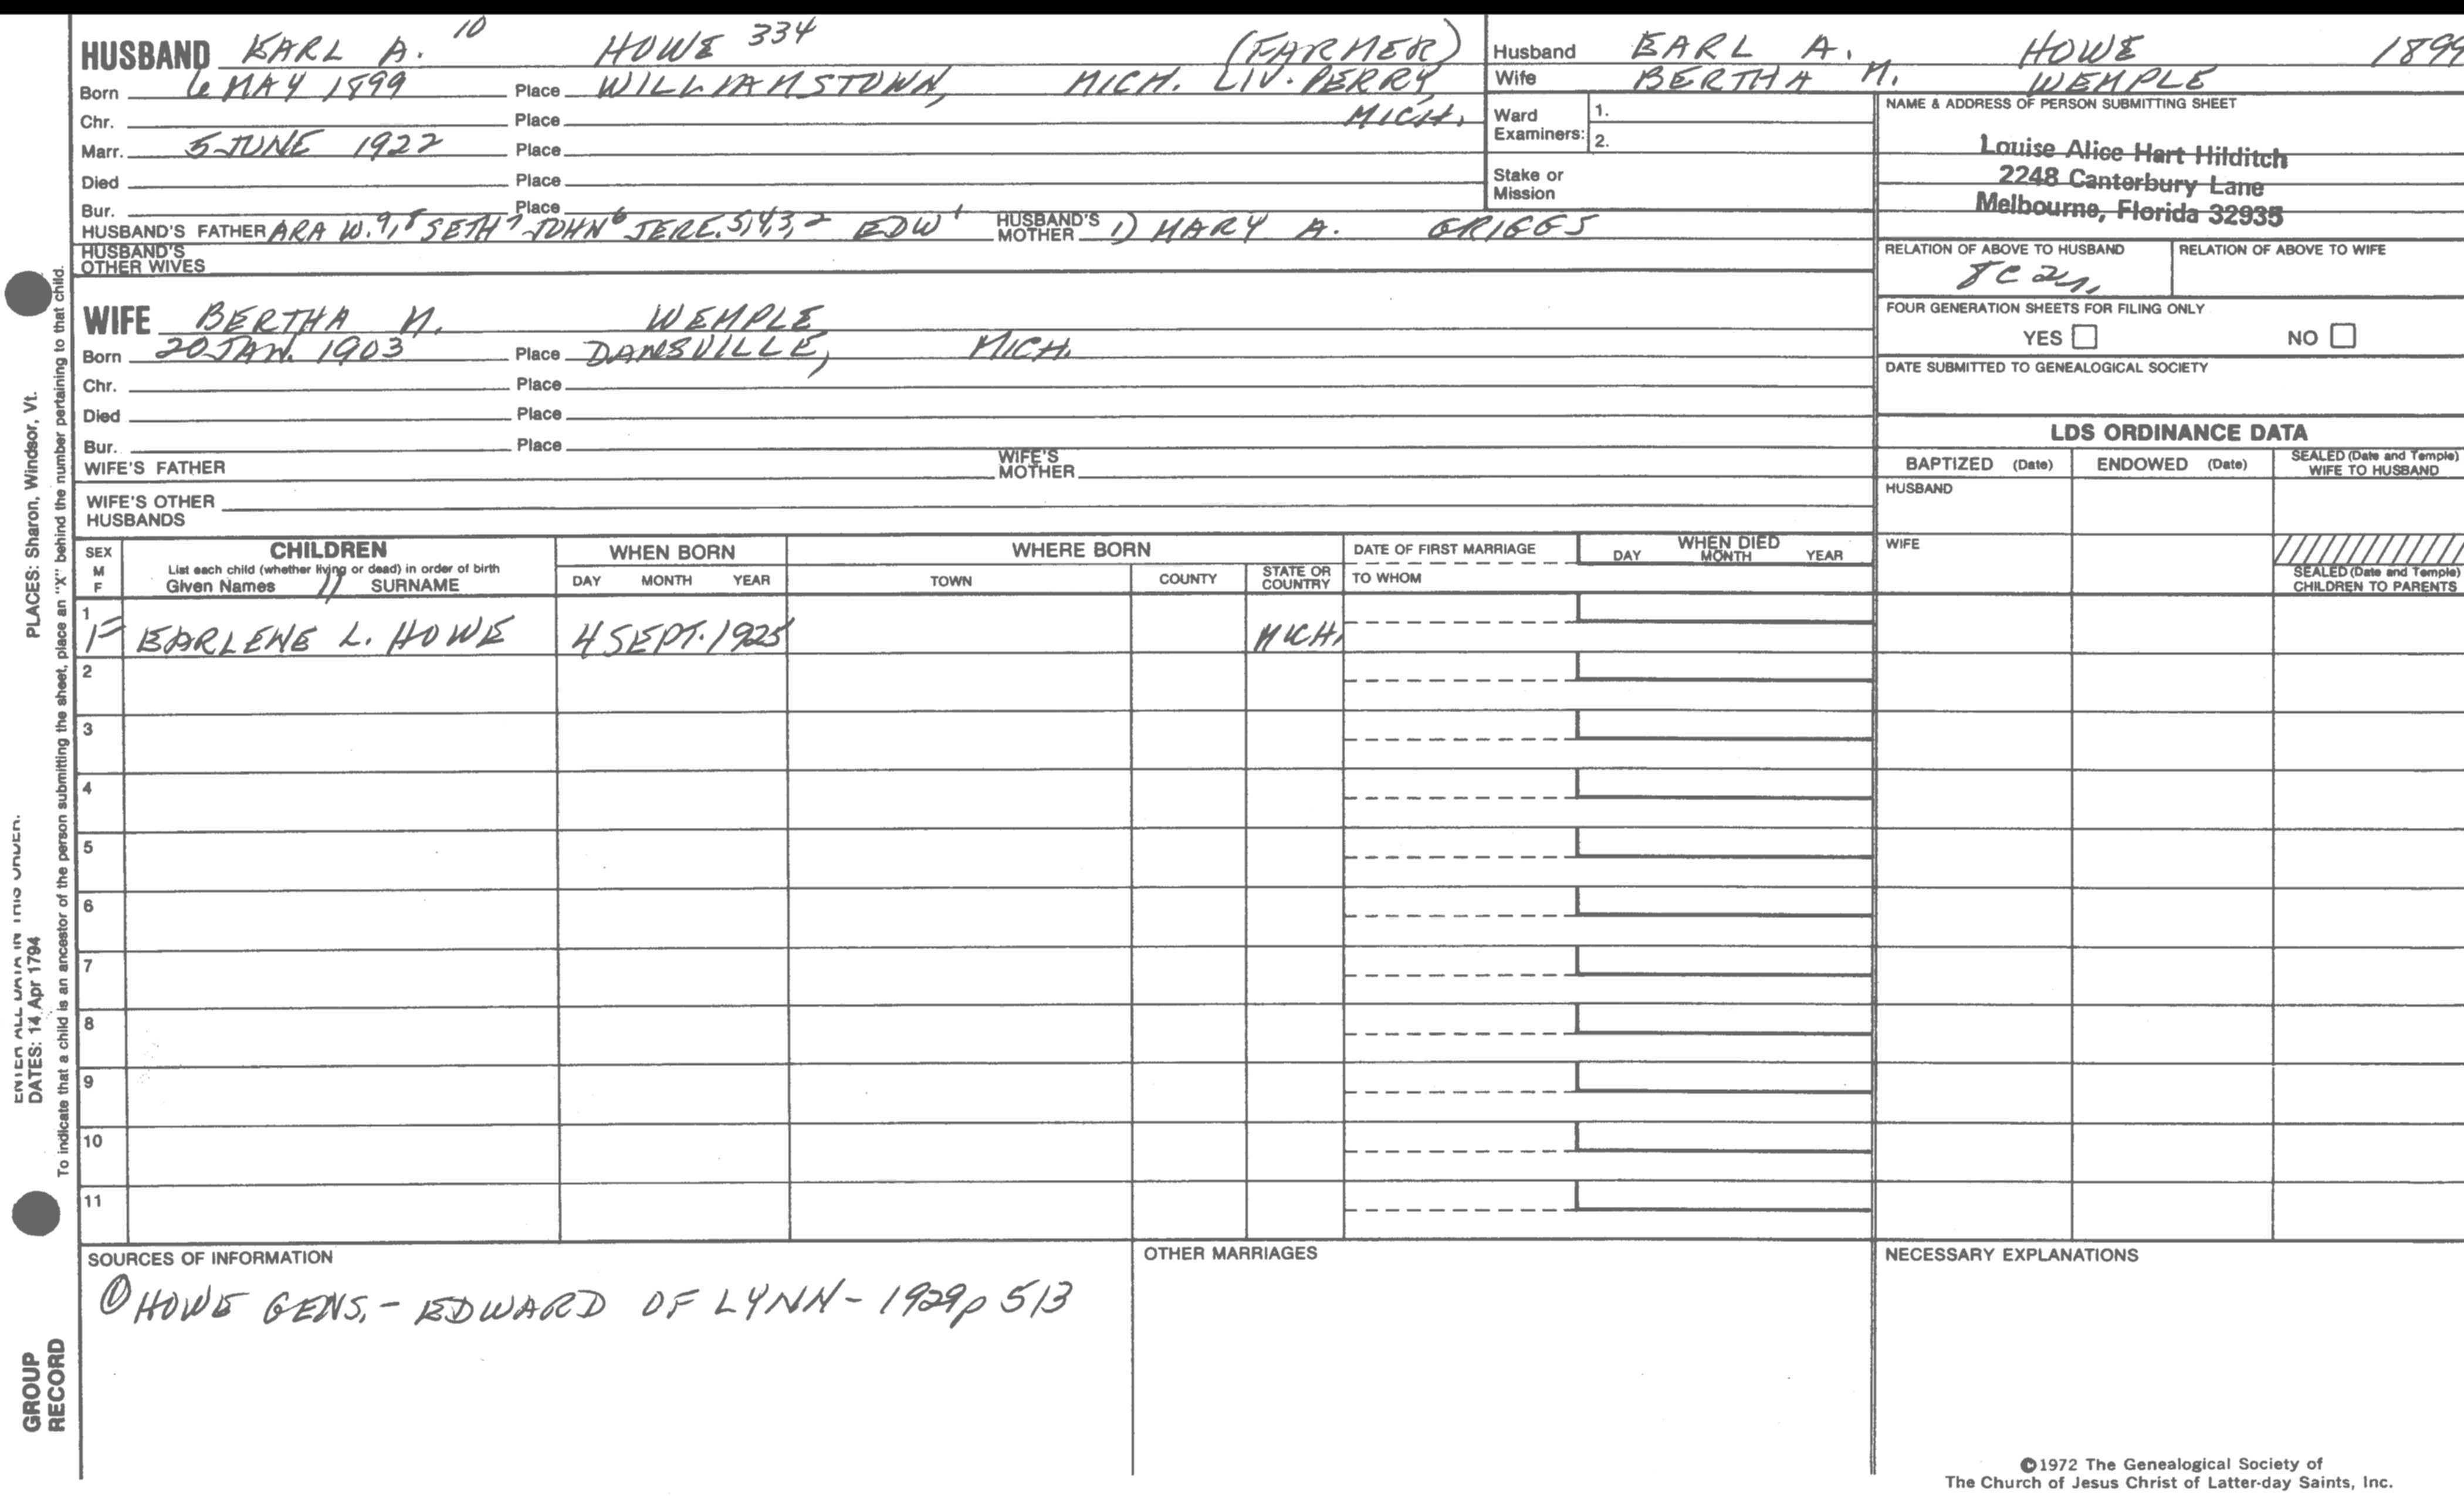 HUSBAND EARL A. 10 HOWE 334 (FARMER)
Born 6 MAY 1899 Place WILLIAMSTOWN, MICH. LIV. PERRY,
Chr. Place MICH.
Marr. 5 JUNE 1922 Place
Died Place
Bur. Place
HUSBAND'S FATHER ARA W. 9,8 SETH 7 JOHN 6 JERE. 5,4,3,2 EDW 1 HUSBAND'S MOTHER 1) MARY A. GRIGGS
HUSBAND'S OTHER WIVES
WIFE BERTHA M. WEMPLE
Born 20 JAN. 1903 Place DANSVILLE, MICH.
Chr. Place
Died Place
Bur. Place
WIFE'S FATHER WIFE'S MOTHER
WIFE'S OTHER HUSBANDS
Husband EARL A. HOWE 1899
Wife BERTHA M. WEMPLE
Ward Examiners: 1.
2.
Stake or Mission
NAME & ADDRESS OF PERSON SUBMITTING SHEET
Louise Alice Hart Hilditch
2248 Canterbury Lane
Melbourne, Florida 32935
RELATION OF ABOVE TO HUSBAND RELATION OF ABOVE TO WIFE
8C 2r.
FOUR GENERATION SHEETS FOR FILING ONLY
YES NO
DATE SUBMITTED TO GENEALOGICAL SOCIETY
LDS ORDINANCE DATA
BAPTIZED (Date) ENDOWED (Date) SEALED (Date and Temple) WIFE TO HUSBAND
HUSBAND
WIFE
SEALED (Date and Temple) CHILDREN TO PARENTS
SEX M F
CHILDREN
List each child (whether living or dead) in order of birth
Given Names SURNAME
WHEN BORN
DAY MONTH YEAR
WHERE BORN
TOWN COUNTY STATE OR COUNTRY
DATE OF FIRST MARRIAGE
TO WHOM
WHEN DIED
DAY MONTH YEAR
1 F EARLENE L. HOWE 4 SEPT. 1925 MICH.
2
3
4
5
6
7
8
9
10
11
SOURCES OF INFORMATION
① HOWE GENS. - EDWARD OF LYNN - 1929 p 513
OTHER MARRIAGES
NECESSARY EXPLANATIONS
©1972 The Genealogical Society of
The Church of Jesus Christ of Latter-day Saints, Inc.
PLACES: Sharon, Windsor, Vt.
ENTER ALL DATA IN THIS ORDER:
DATES: 14 Apr 1794
To indicate that a child is an ancestor of the person submitting the sheet, place an "X" behind the number pertaining to that child.
GROUP
RECORD